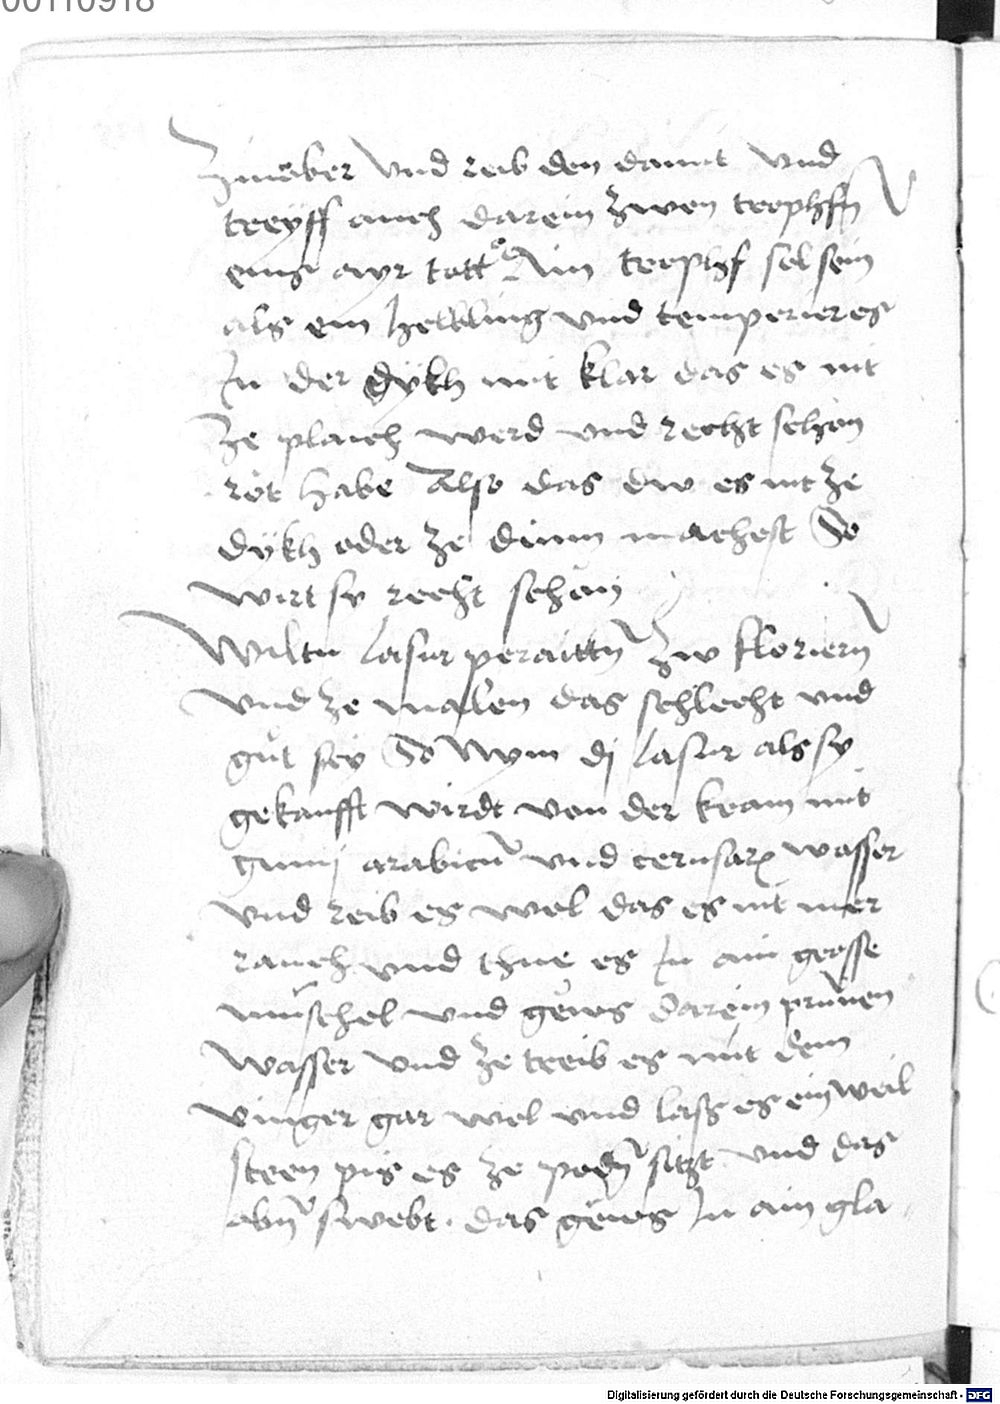 00110918
Zinober vnd reib den damit vnd
treyff auch darein zwen trophffn
eins ayr tott° Ain trophf sol sein
als ein helbling vnd temperier es
In der dykh mit klar das es nit
ze plaich werd vnd recht schon
röt habe Also das dw es nit ze
dykh oder ze dinn machest So
wirt sy recht schön
Wiltu lasur peraittn zw floriern
vnd ze malen das schlecht vnd
gůt sey So Nym dj lasur als sy
gekaufft wirdt von der kram mit
gumj arabicū vnd cerusarx wasser
vnd reib es wol das es nit mer
rauch vnd thue es In ain grosse
muschel vnd gews darein prunen
wasser vnd ze treib es mit dem
vinger gar wol vnd laß es ein weil
steen pis es ze podn sitzt vnd das
obn swebt . das gews In ain gla
Digitalisierung gefördert durch die Deutsche Forschungsgemeinschaft - DFG